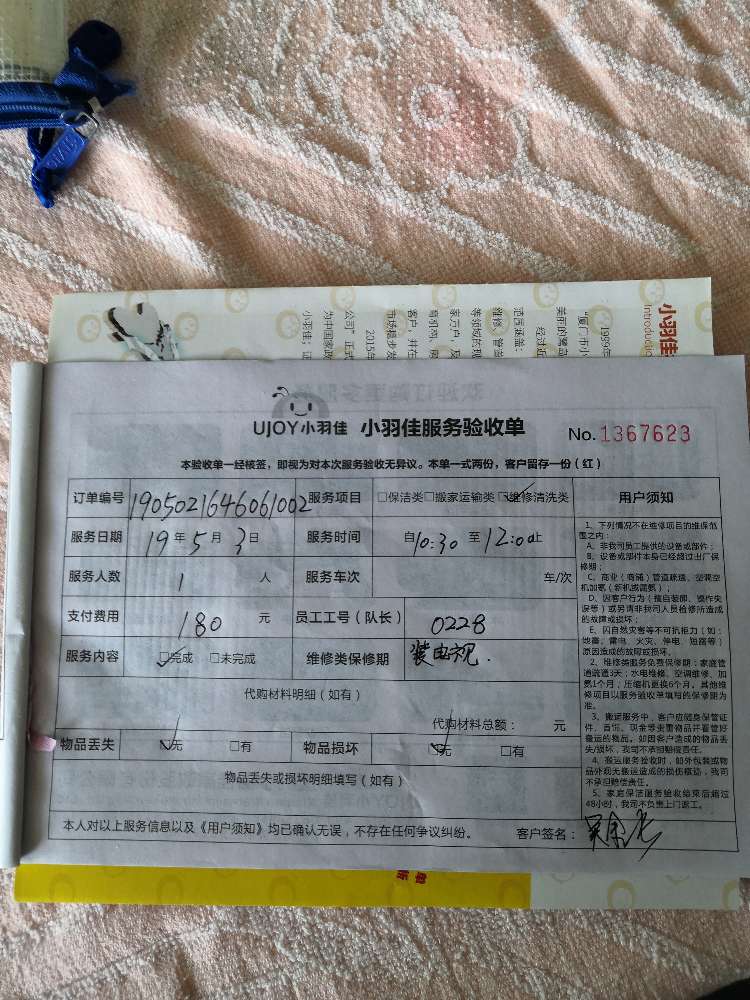 小羽佳
UJOY小羽佳 小羽佳服务验收单 No.1367623
本验收单一经核签，即视为对本次服务验收无异议。本单一式两份，客户留存一份（红）
订单编号 1905021646061002 服务项目 □保洁类□搬家运输类□维修清洗类 用户须知
服务日期 19年5月3日 服务时间 自10:30至12:00止
服务人数 1 人 服务车次 车/次
支付费用 180 元 员工工号（队长） 0228
服务内容 □完成 □未完成 维修类保修期 装电视.
代购材料明细（如有）
代购材料总额： 元
物品丢失 □无 □有 物品损坏 □无 □有
物品丢失或损坏明细填写（如有）
本人对以上服务信息以及《用户须知》均已确认无误，不存在任何争议纠纷。 客户签名：
1、下列情况不在维修项目的维保范
围之内：
A、非我司员工提供的设备或部件；
B、设备或部件本身已经超过出厂保
修期；
C、商业（商铺）管道疏通、空调空
机加氨（新机或置氨）；
D、因客户行为（擅自装卸、操作失
误等）或另请非我司人员检修所造成
的故障或损坏；
E、因自然灾害等不可抗能力（如：
地震、雷电、火灾、停电、短路等）
原因造成的故障或损坏。
2、维修类服务免费保修期：家庭管
道疏通3天；水电维修、空调维修、加
氨1个月；压缩机更换6个月。其他维
修项目以服务验收单填写的保修期为
准。
3、搬运服务中，客户应随身保管证
件、首饰、现金等贵重物品并看管好
搬运的物品。如因客户造成的物品丢
失/损坏，我司不承担赔偿责任。
4、搬运服务验收时，如外包装或物
品外观无搬运造成的损伤痕迹，我司
不承担赔偿责任。
5、家庭保洁服务验收结束后超过
48小时，我司不负责上门返工。